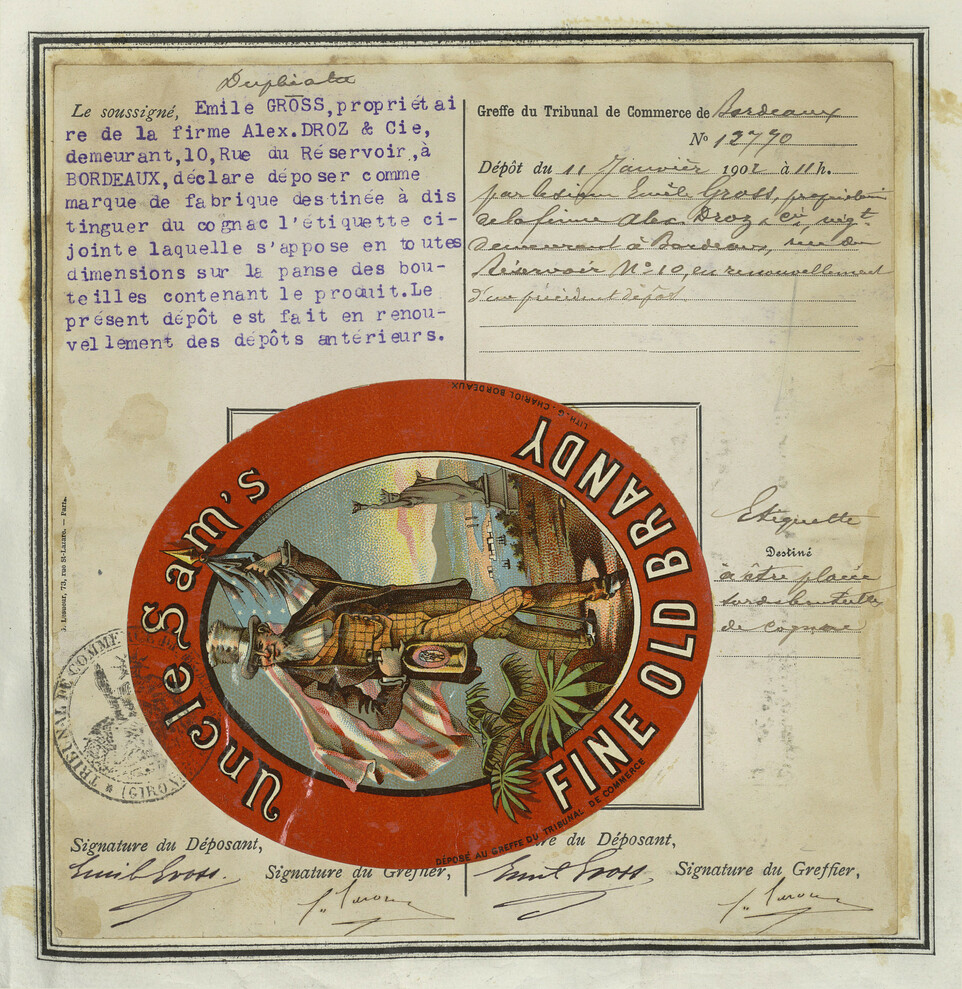 Duplicata
Le soussigné, Emile GROSS, propriétai
re de la firme Alex. DROZ & Cie,
demeurant,10,Rue du Réservoir,à
BORDEAUX,déclare déposer comme
marque de fabrique destinée à dis
tinguer du cognac l'étiquette ci-
jointe laquelle s'appose en toutes
dimensions sur la panse des bou-
teilles contenant le produit.Le
présent dépôt est fait en renou-
vellement des dépôts antérieurs.
Greffe du Tribunal de Commerce de Bordeaux
No 12770
Dépôt du 11 Janvier 1902 à 11 h.
par le sieur Emile Gross, propriétaire
de la firme Alex. Droz & Cie, négt
demeurant à Bordeaux, rue du
Réservoir No 10, en renouvellement
d'un précédent dépôt
LITH. G. CHARIOL BORDEAUX
Uncle Sam's
FINE OLD BRANDY
DÉPOSÉ AU GREFFE DU TRIBUNAL DE COMMERCE
Etiquette
Destiné
à être placée
sur des bouteilles
de cognac
73, rue St-Lazare. — Paris.
TRIBUNAL DE COMME
(GIRO
Signature du Déposant,
Emile Gross
Signature du Greffier,
re du Déposant,
Emile Gross
Signature du Greffier,